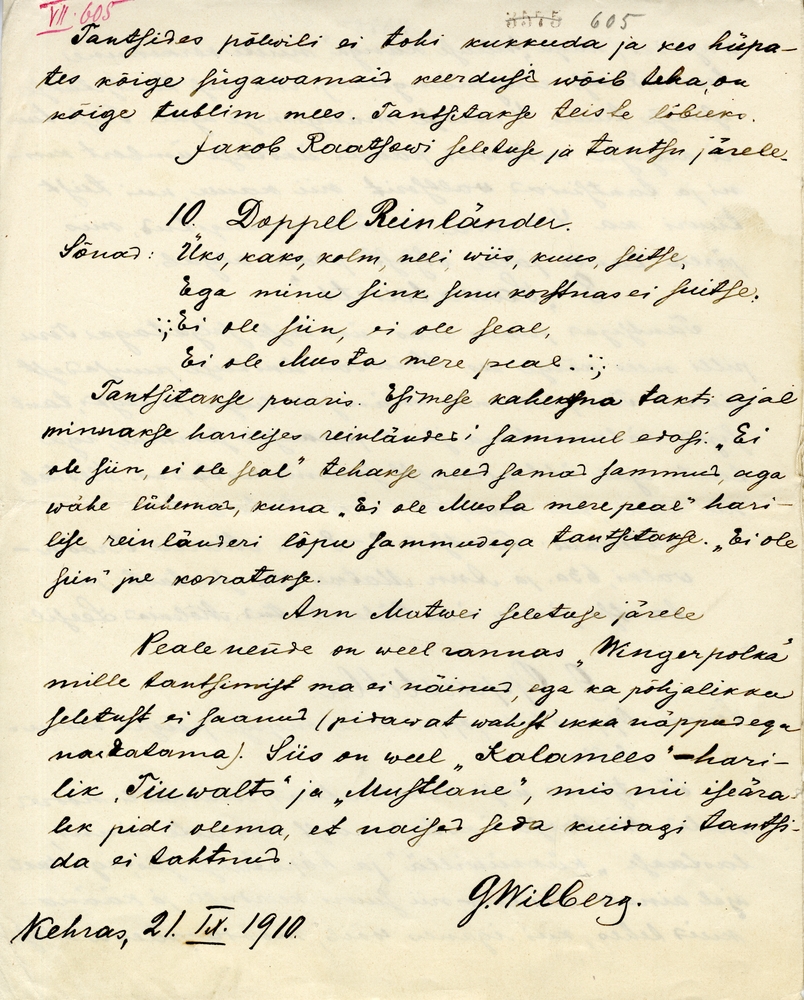 VII. 605
605
Tantsides põlwili ei tohi kukkuda ja kes hüpa-
tes kõige sügawamaid keerdusi wõib teha, on
kõige tublim mees. Tantsitakse teiste lõbuks.
Jakob Raatsowi seletuse ja tantsu järele.
10. Doppel Reinländer.
Sõnad: Üks, kaks, kolm, neli, wiis, kuus, seitse,
Ega minu sink sinu korstnas ei suitse.
:,: Ei ole siin, ei ole seal,
Ei ole Musta mere peal. :,:
Tantsitakse paaris. Esimese kaheksna takti ajal
minnakse harilises reinländeri sammul edasi. „Ei
ole siin, ei ole seal" tehakse need samad sammud, aga
wähe lühemad, kuna „Ei ole Musta mere peal" hari-
lise reinländeri lõpu sammudega tantsitakse. „Ei ole
siin" jne korratakse.
Ann Matwei seletuse järele
Peale nende on weel rannas „Wingerpolka"
mille tantsimist ma ei näinud, ega ka põhjalikku
seletust ei saanud (pidawat wahest ikka näppudega
naksatama). Siis on weel „Kalamees" - hari-
lik „Tiuwalts" ja „Mustlane", mis nii iseära-
lik pidi olema, et naised seda kuidagi tantsi-
da ei tahtnud.
G. Wilberg.
Kehras, 21. IX. 1910.